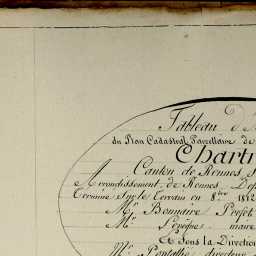 Tableau d'
du Plan Cadastral Parcellaire de
Chart
Canton de Rennes
Arrondissement de Rennes Dép
Terminé Sur le Terrain en 8.bre 1812
M.r Bonnaire Préfet
M.r maire
& Sous la Direction
M.r directeur